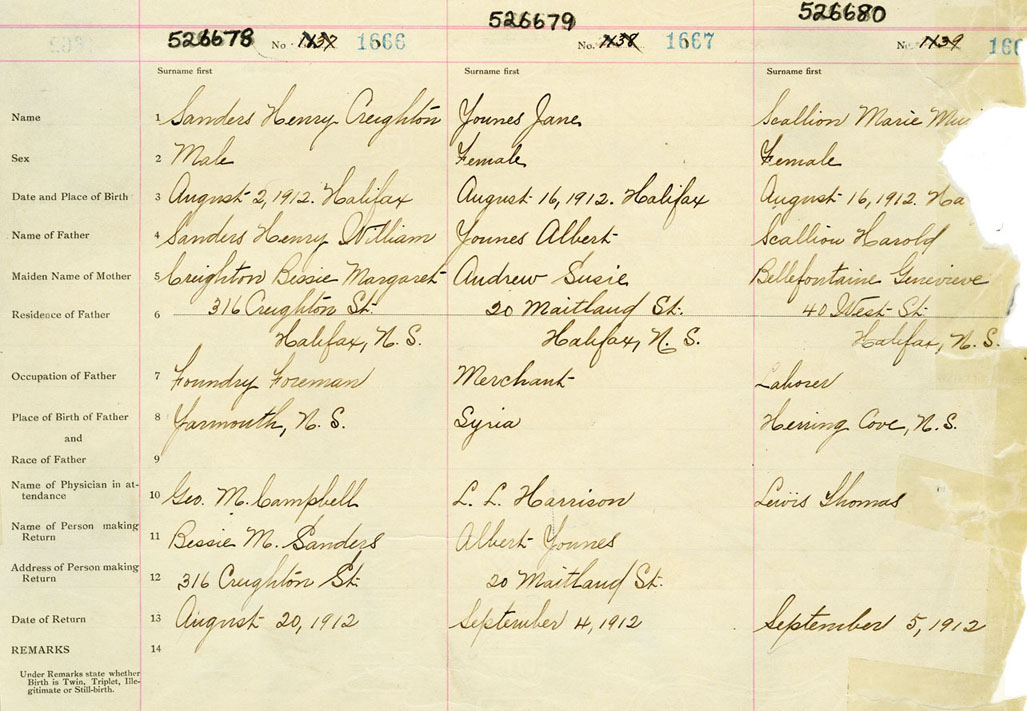 526678 526679 526680
No. 1437 1666 No. 1438 1667 No. 1439
Surname first Surname first Surname first
Name 1 Sanders Henry Creighton Younes Jane Scallion Marie
Sex 2 Male Female Female
Date and Place of Birth 3 August 2, 1912. Halifax August 16, 1912. Halifax August 16, 1912. Ha
Name of Father 4 Sanders Henry William Younes Albert Scallion Harold
Maiden Name of Mother 5 Creighton Bessie Margaret Andrew Susie Bellefontaine Genevieve
Residence of Father 6 316 Creighton St. 20 Maitland St. 40 West St.
Halifax, N.S. Halifax, N.S. Halifax, N.S.
Occupation of Father 7 Foundry Foreman Merchant Laborer
Place of Birth of Father 8 Yarmouth, N.S. Syria Herring Cove, N.S.
and
Race of Father 9
Name of Physician in at-
tendance 10 Geo. M. Campbell L. L. Harrison Lewis Thomas
Name of Person making
Return 11 Bessie M. Sanders Albert Younes
Address of Person making
Return 12 316 Creighton St. 20 Maitland St.
Date of Return 13 August 20, 1912 September 4, 1912 September 5, 1912
REMARKS 14
Under Remarks state whether
Birth is Twin, Triplet, Ille-
gitimate or Still-birth.